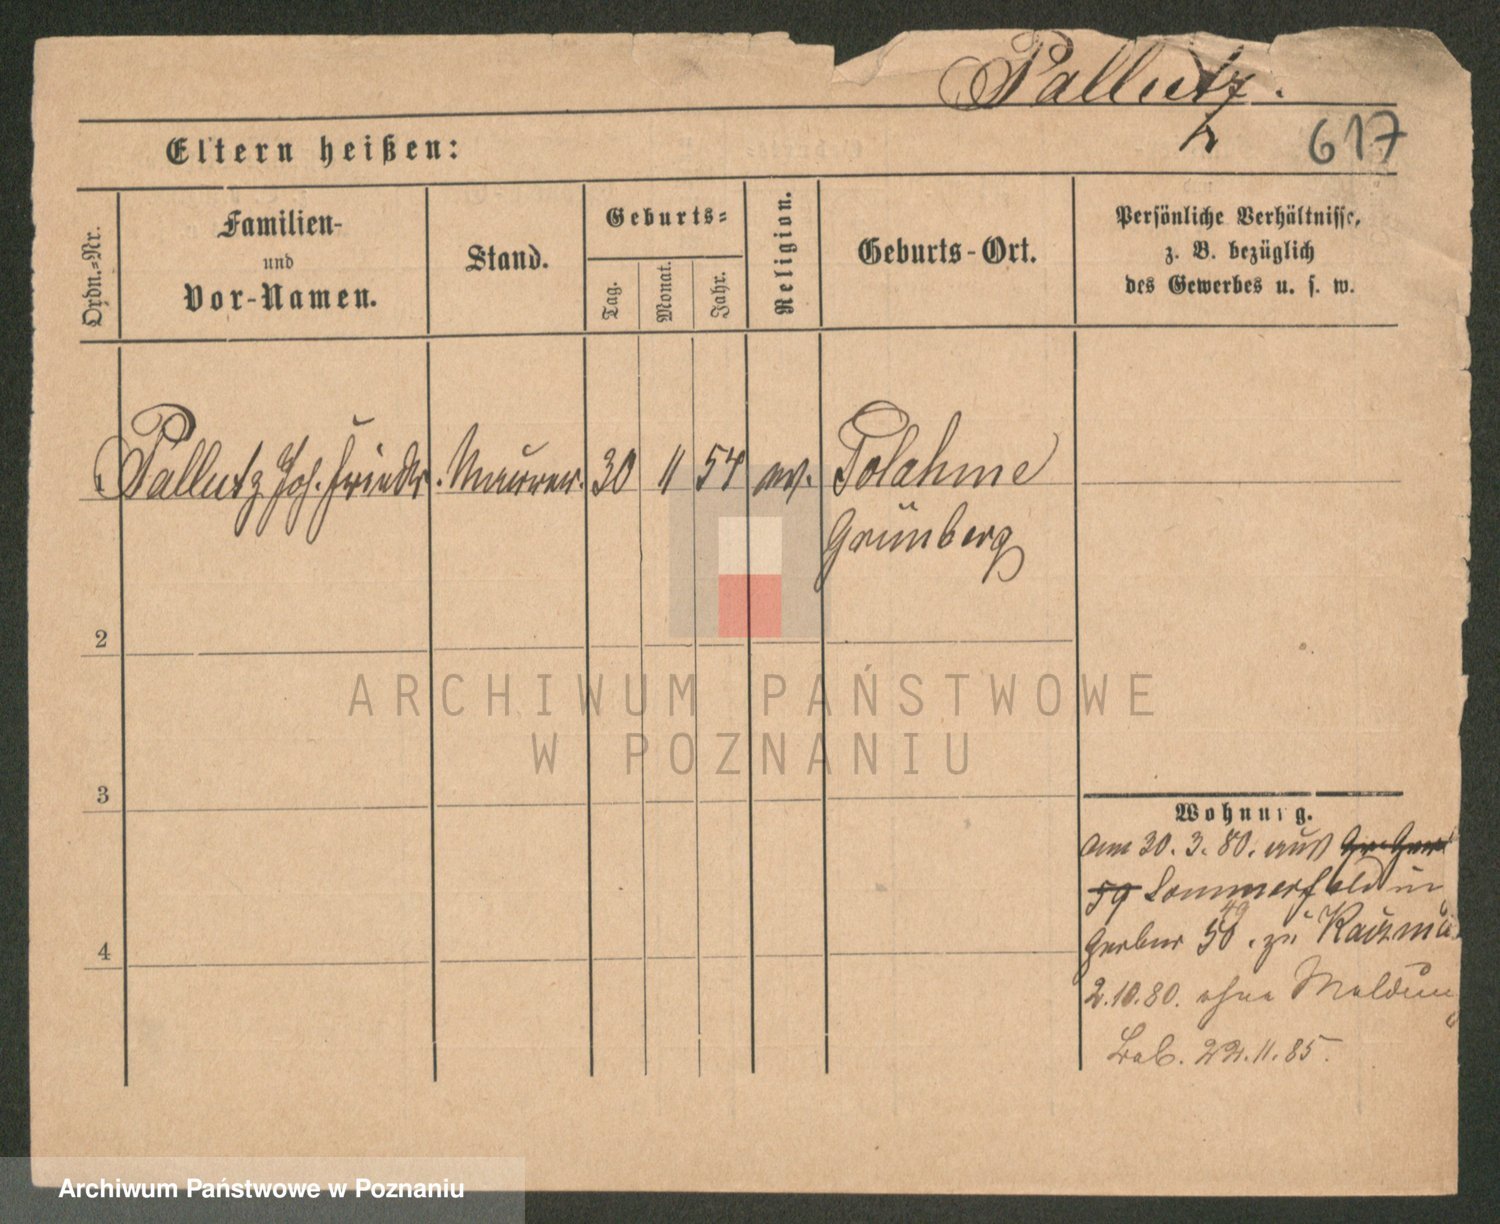 Pallutz.
617
Eltern heißen:
Ordn.=Nr.
Familien-
und
Vor-Namen.
Stand.
Geburts=
Tag.
Monat.
Jahr.
Religion.
Geburts-Ort.
Persönliche Verhältnisse,
z. B. bezüglich
des Gewerbes u. s. w.
Pallutz Joh. Friedr. Maurer. 30 11 54 ev.
Grünberg
2
3
4
ARCHIWUM PAŃSTWOWE
W POZNANIU
Wohnung.
am 30. 3. 80. aus
59 Sommerfeld in
Gerber 50 49 zu
2.10.80. ohne Meldung
22.11.85.
Archiwum Państwowe w Poznaniu